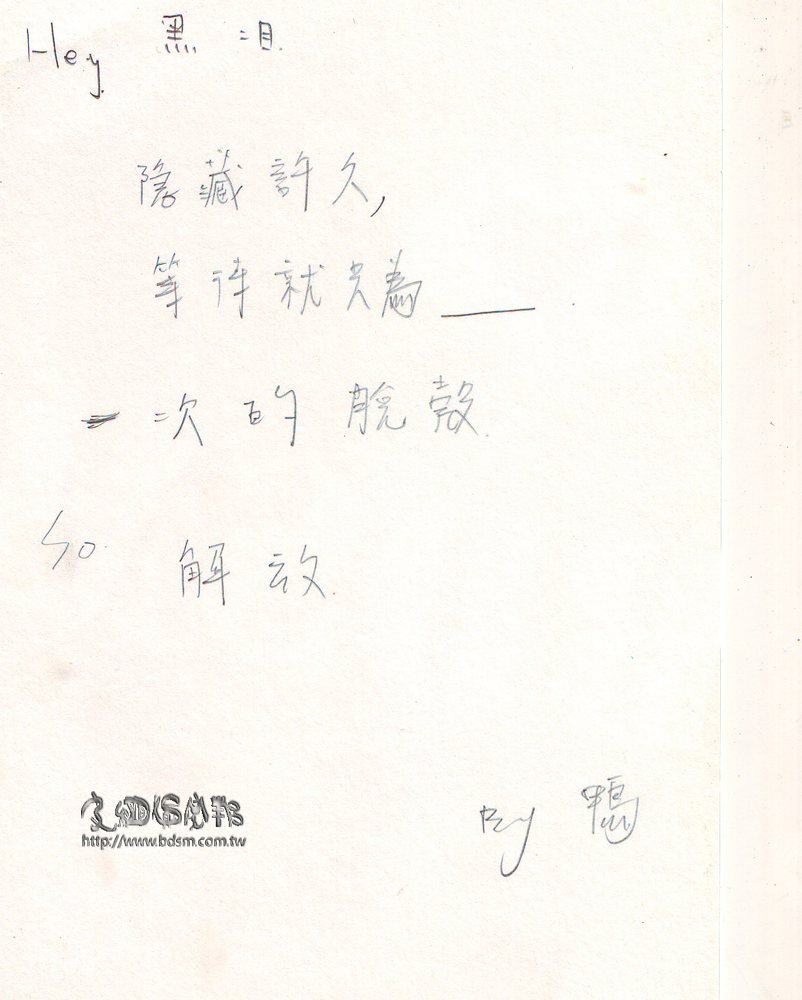 Hey 黑泪.
隱藏許久,
等待就只為___
一次的脫殼.
So. 解放.
By 鴨
http://www.bdsm.com.tw